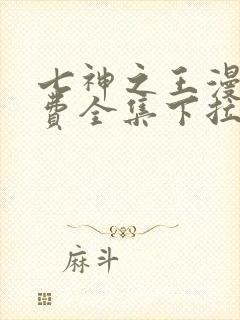 七神之王漫
费全集下拉
麻斗